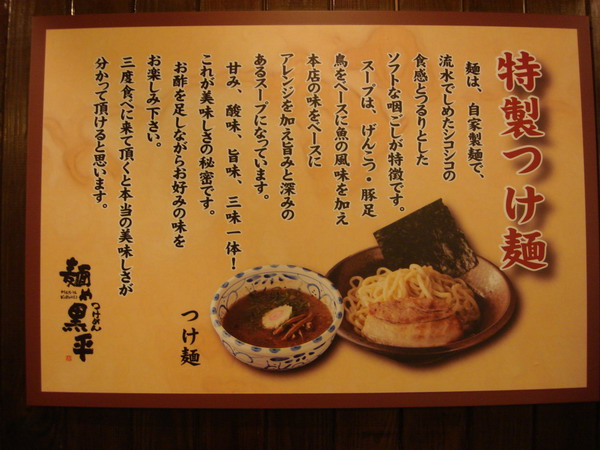 特製つけ麺
麺は、自家製麺で、
流水でしめたシコシコの
食感とつるりとした
ソフトな咽ごしが特徴です。
スープは、げんこつ・豚足
鳥をベースに魚の風味を加え
本店の味をベースに
アレンジを加え旨みと深みの
あるスープになっています。
甘み、酸味、旨味、三味一体!
これが美味しさの秘密です。
お酢を足しながらお好みの味を
お楽しみ下さい。
三度食べに来て頂くと本当の美味しさが
分かって頂けると思います。
つけ麺
つけめん
麺や黒平